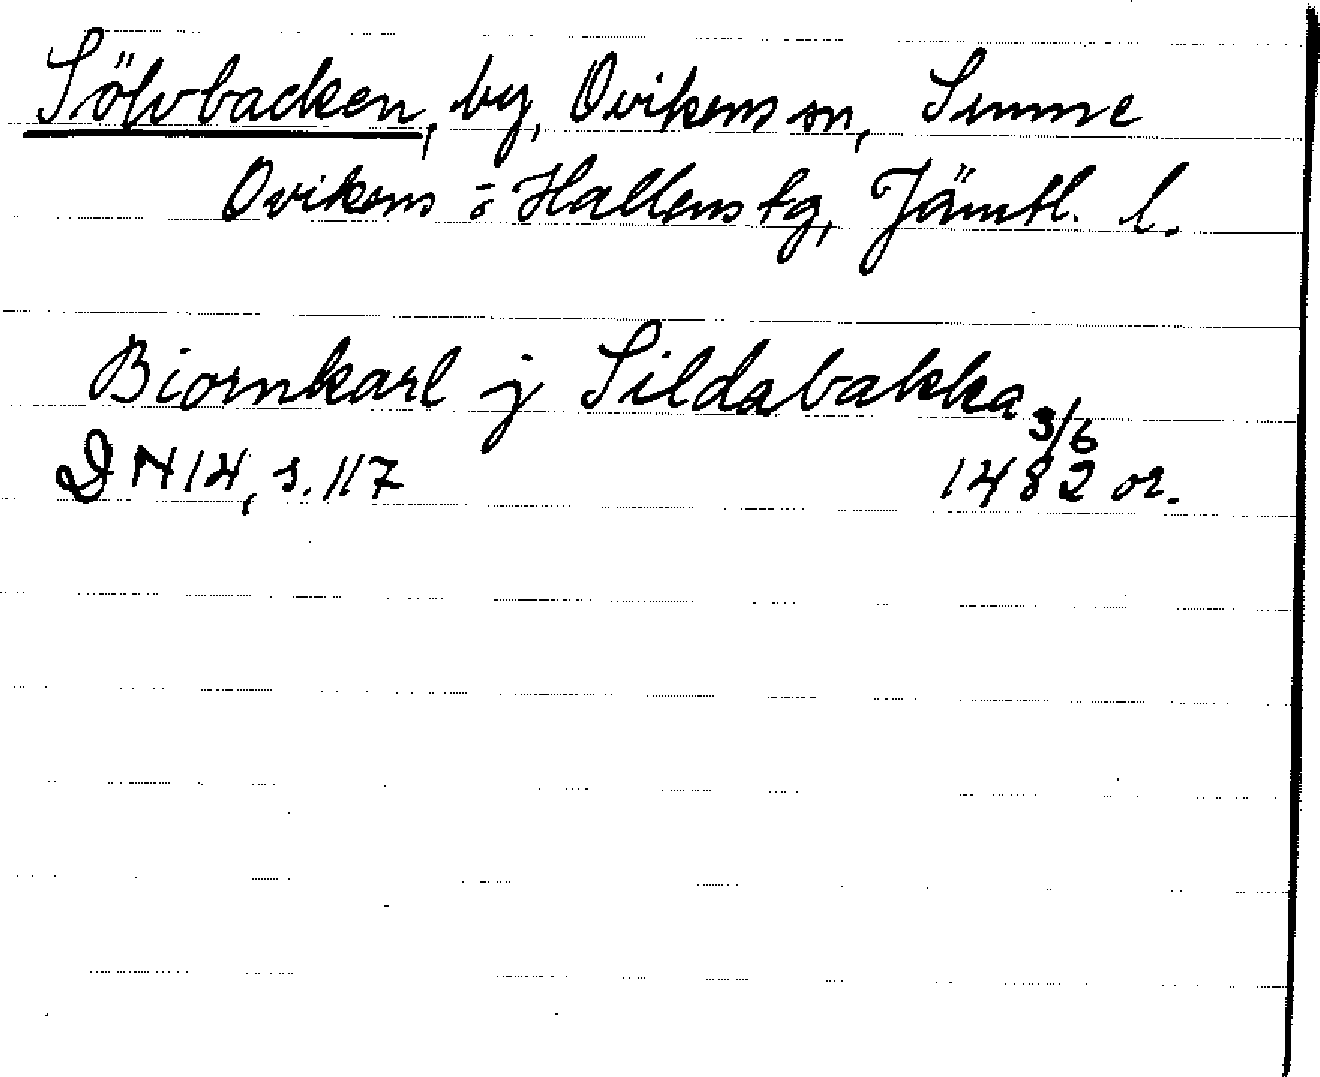 Sölvbacken, by, Ovikens sn, Sunne
Ovikens o Hallens tg, Jämtl. l.
Biornkarl j Sildabakka
3/6
DN 14, s. 117 1482 or.